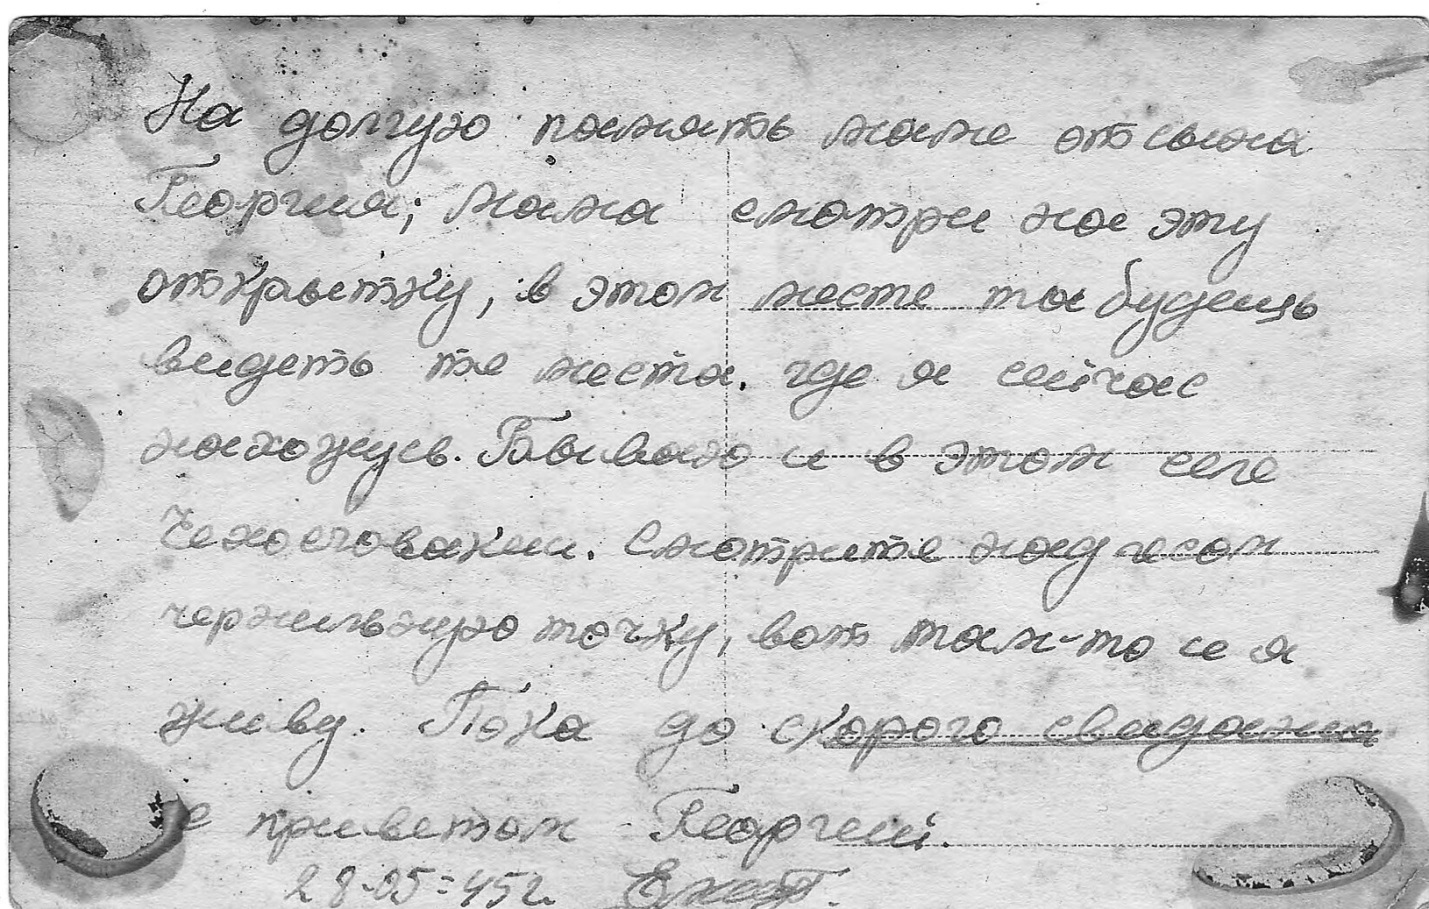 На долгую память маме от сына
Георгия; мама смотри на эту
открытку, в этом месте ты будешь
видеть те места, где я сейчас
нахожусь. Бываю и в этом селе
Чехословакии. Смотрите над лесом
чернильную точку, вот там-то и я
живу. Пока до скорого свидания
с приветом Георгий.
28-05=45г.